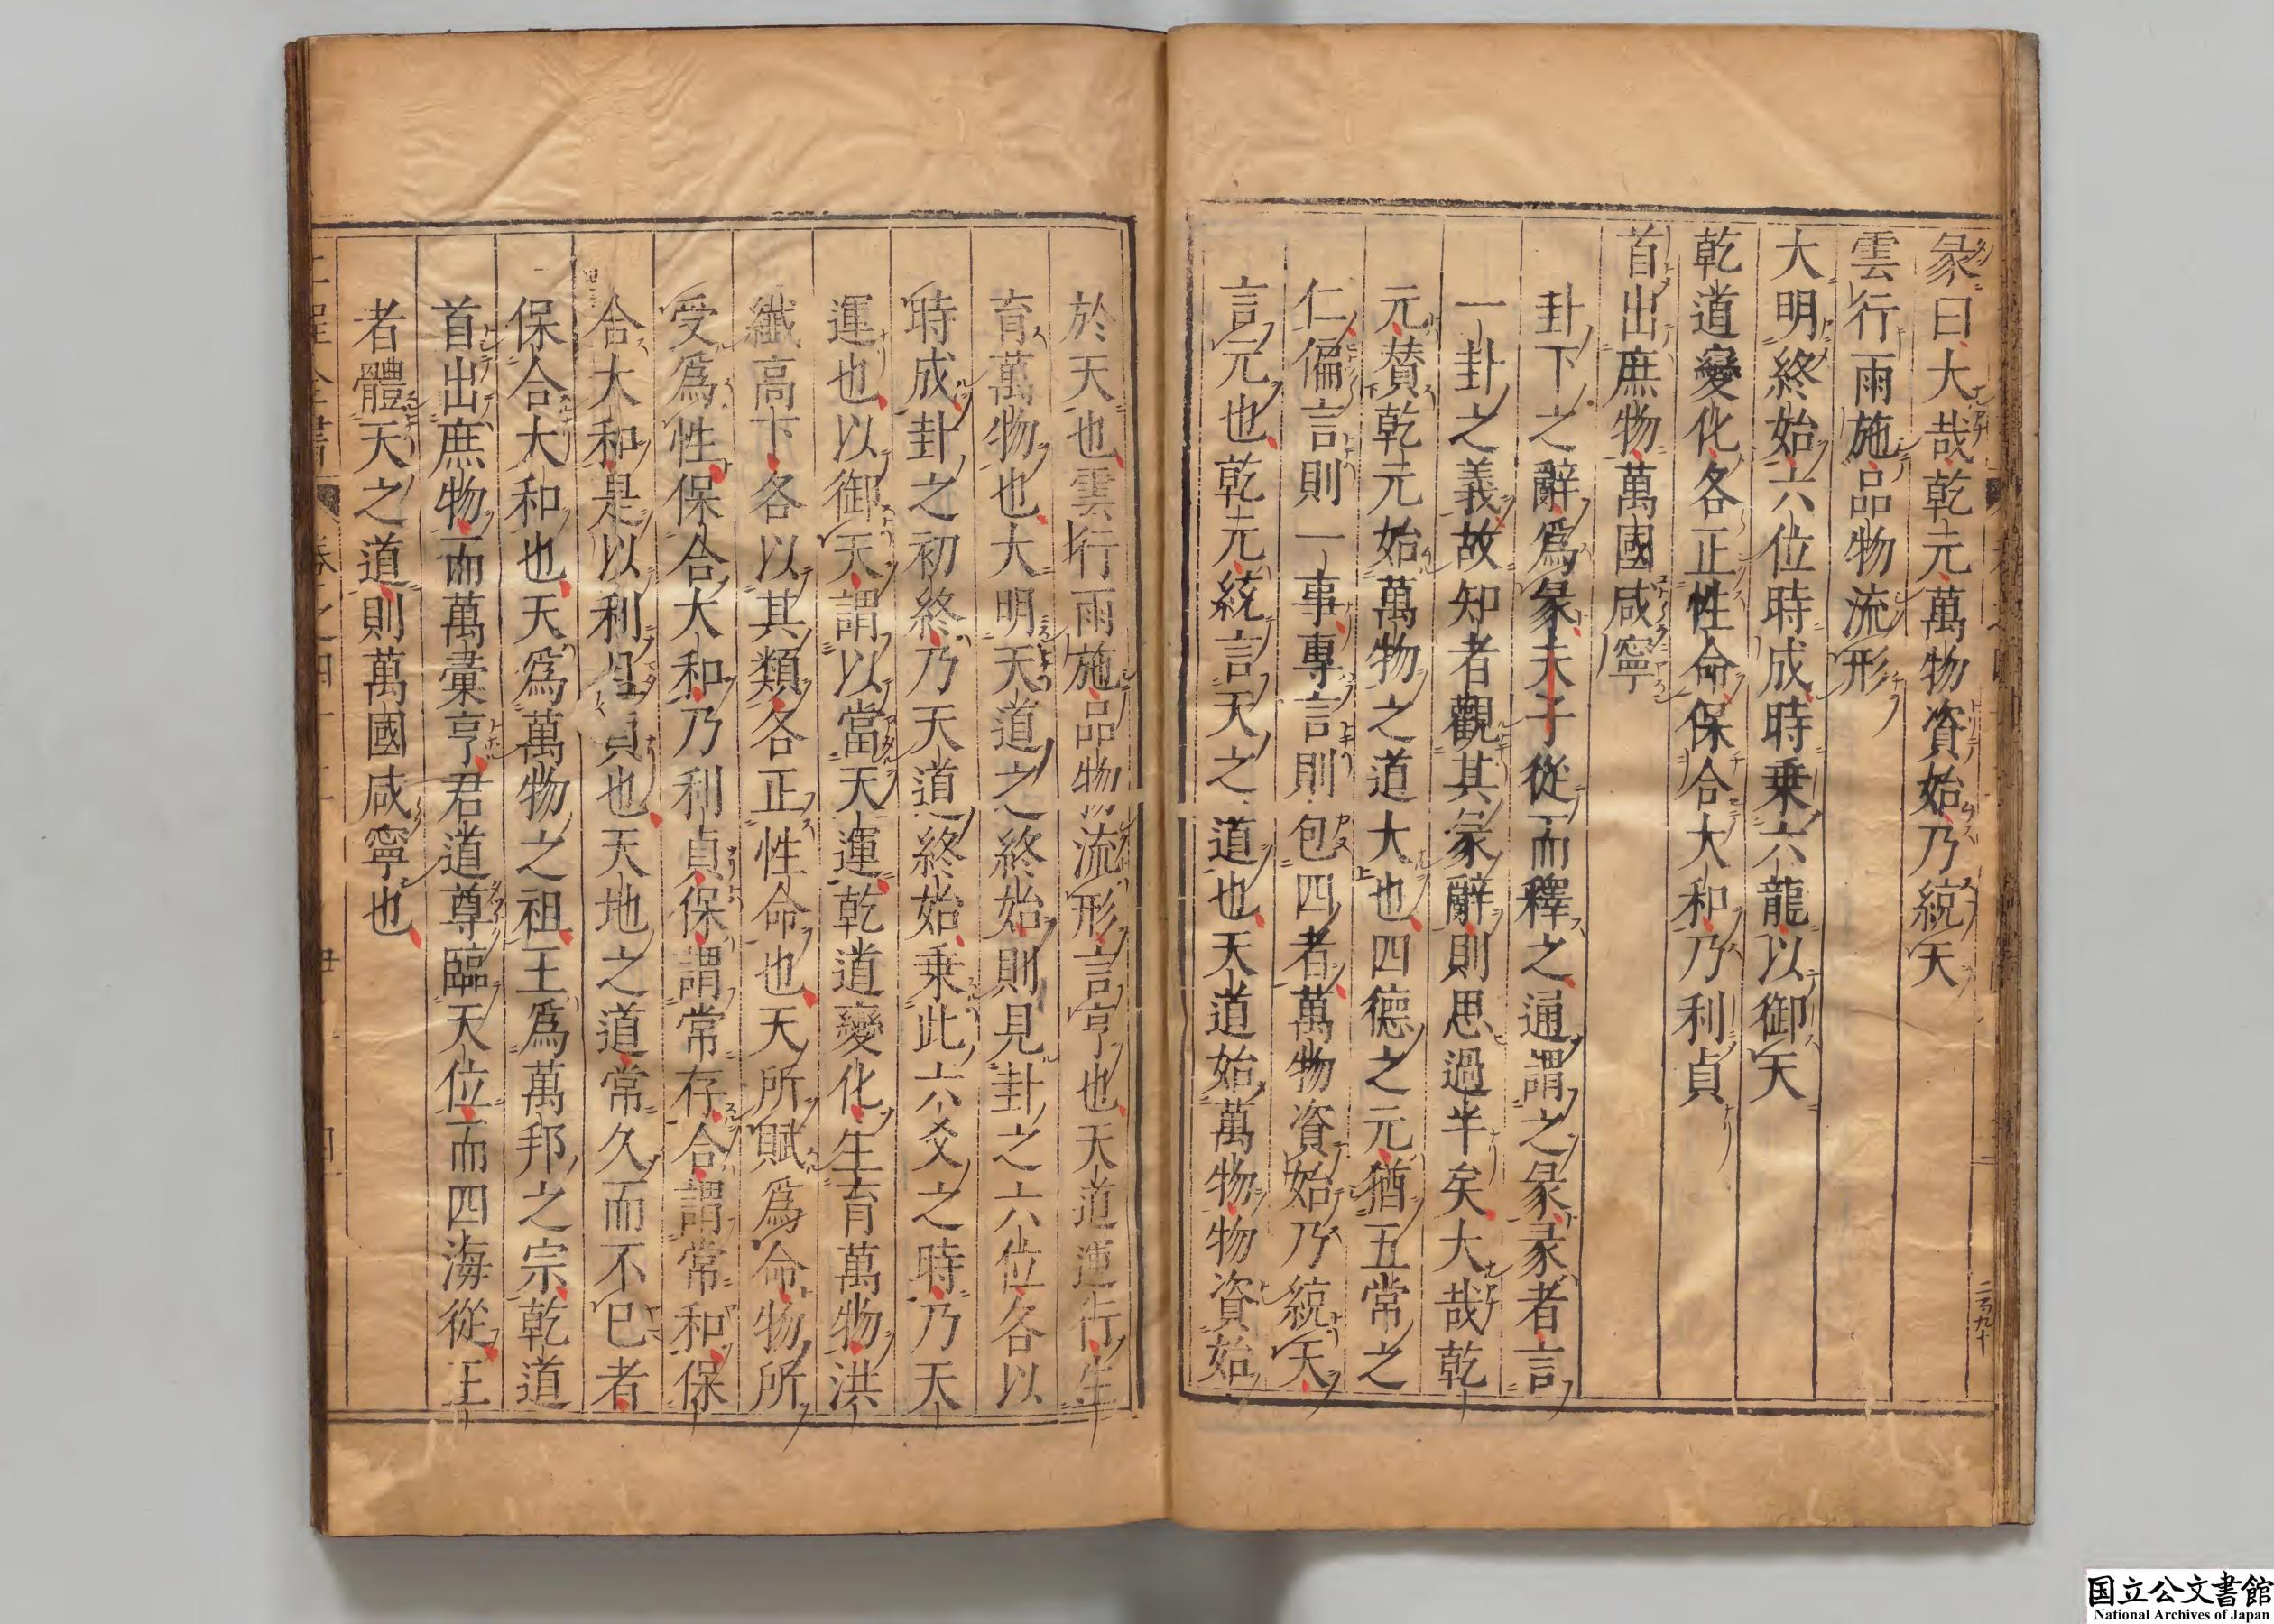 彖曰大哉乾元萬物資始乃統天
雲行雨施品物流形
大明終始六位時成時乗六龍以御天
乾道變化各正性命保合大和乃利貞
首出庶物萬國咸寧
卦下之辭爲彖夫子從而釋之通謂之彖彖者言
一卦之義故知者觀其彖辭則思過半矣大哉乾
元賛乾元始萬物之道大也四德之元猶五常之
仁偏言則一事專言則包四者萬物資始乃統天
言元也乾元統言天之道也天道始萬物物資始
於天也雲行雨施品物流形言亨也天道運行生
育萬物也大明天道之終始則見卦之六位各以
時成卦之初終乃天道終始乗此六爻之時乃天
運也以御天謂以當天運乾道變化生育萬物洪
纖高下各以其類各正性命也天所賦爲命物所
受爲性保合大和乃利貞保謂常存合謂常和保
合大和是以利且貞也天地之道常久而不已者
保合大和也天爲萬物之祖王爲萬邦之宗乾道
首出庶物而萬彙亨君道尊臨天位而四海從王
者體天之道則萬國咸寧也
国立公文書館
National Archives of Japan